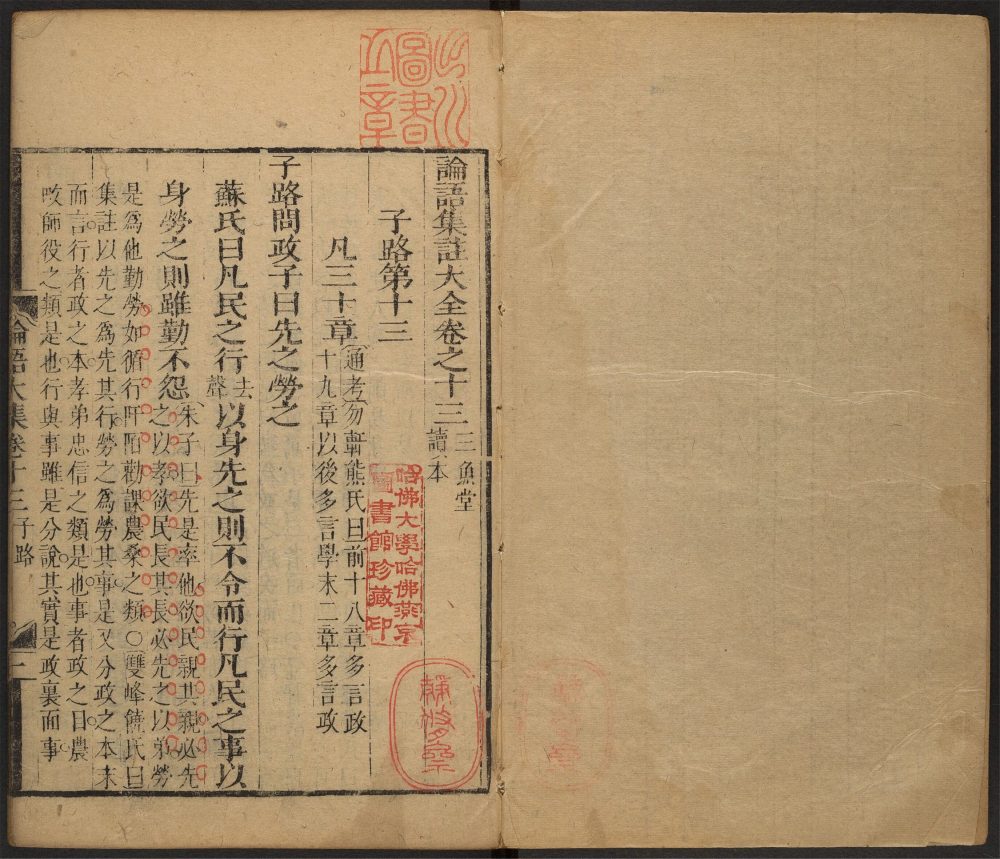 論語集註大全卷之十三 三魚堂讀本
子路第十三
凡三十章 通考勿軒熊氏曰前十八章多言政
十九章以後多言學末二章多言政
子路問政子曰先之勞之
蘇氏曰凡民之行去聲以身先之則不令而行凡民之事以
身勞之則雖勤不怨 朱子曰先是率他欲民親其親必先
之以孝欲民長其長必先之以弟勞
是爲他勤勞如循行阡陌勸課農桑之類○雙峰饒氏曰
集註以先之爲先其行勞之爲勞其事是又分政之本末
而言行者政之本孝弟忠信之類是也事者政之目農
畋師役之類是也行與事雖是分說其實是政裏面事
論語大集卷十三 子路 一
圖書
章
哈佛大學哈佛燕京
圖書館珍藏印